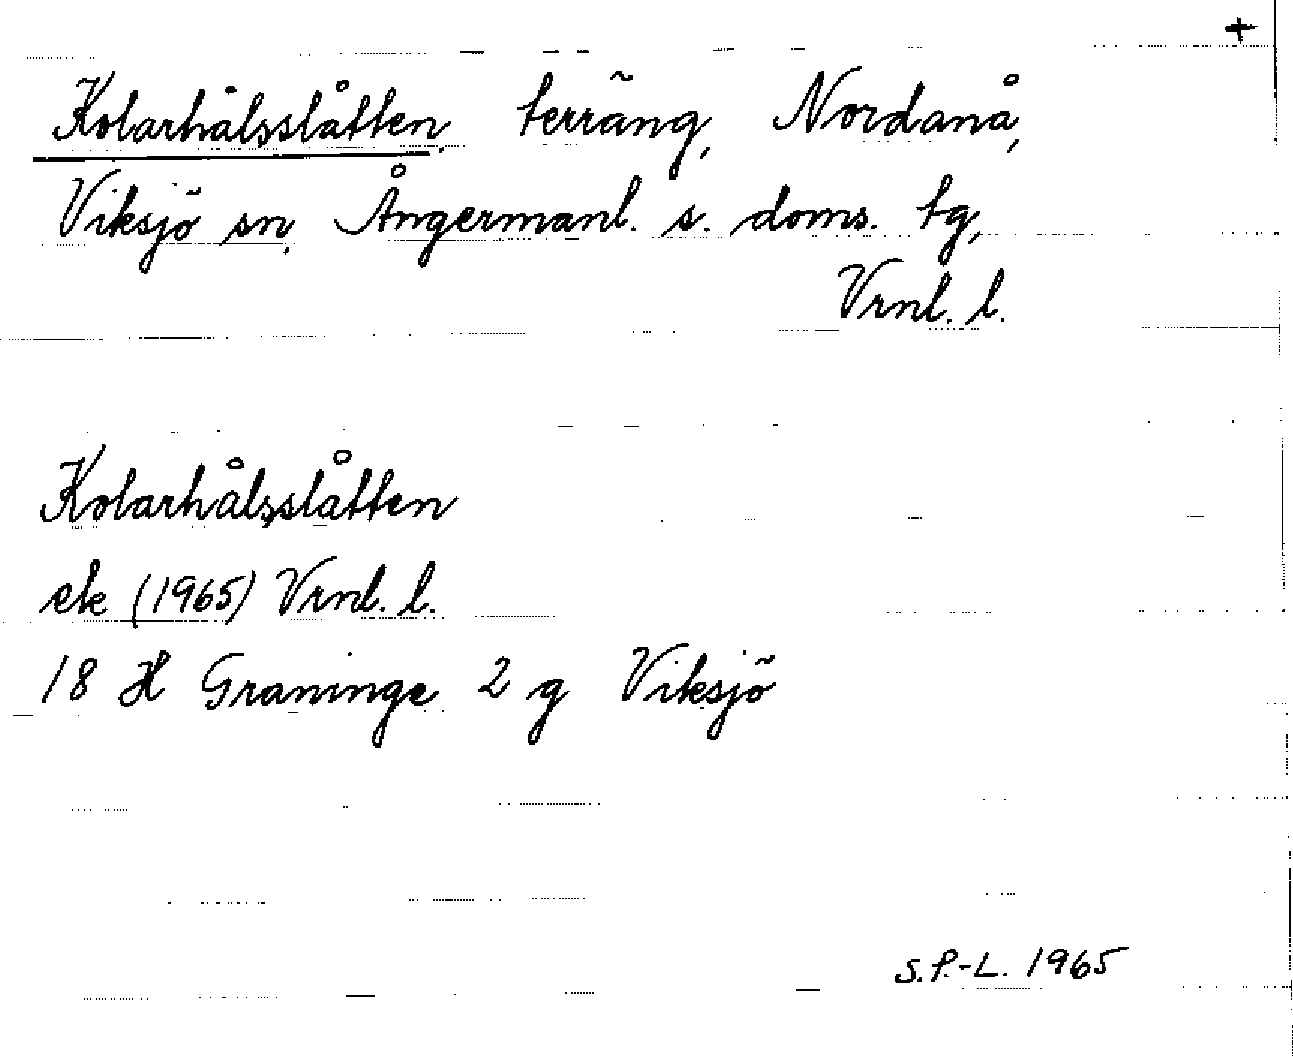 +
Kolarhålsslåtten, terräng, Nordanå,
Viksjö sn, Ångermanl. s. doms. tg,
Vrnl. l.
Kolarhålsslåtten
ek (1965) Vrnl. l.
18 H Graninge 2 g Viksjö
S.P.-L. 1965